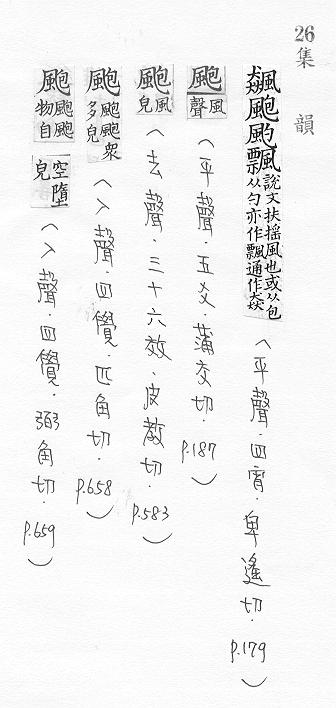 26集韻
飆颮飄說文扶搖風也或从包从勺亦作飄通作猋（平聲．四宵．卑遙切．p.179）
颮風聲（平聲．五爻．蒲交切．p.187）
颮風皃（去聲．三十六效．皮教切．p.583）
颮颮颮衆多皃（入聲．四覺．匹角切．p.658）
颮颮颮物自空墮皃（入聲．四覺．弼角切．p.659）